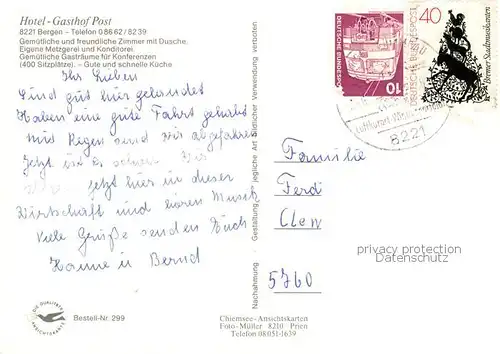 Hotel - Gasthof Post
8221 Bergen - Telefon 0 86 62 / 82 39
Gemütliche und freundliche Zimmer mit Dusche.
Eigene Metzgerei und Konditorei.
Gemütliche Gasträume für Konferenzen
(400 Sitzplätze). – Gute und schnelle Küche
Ihr Lieben
Sind gut hier gelandet
Haben eine gute Fahrt gehabt
mit Regen sind wir abgefahren
jetzt ist es schöner. Wir
jetzt hier in dieser
Wirtschaft und hören Musik
Viele Grüße senden Euch
Hanne u Bernd
DIE QUALITÄTS
ANSICHTSKARTE
Bestell-Nr. 299
Nachahmung
Gestaltung
jegliche Art bildlicher Verwendung verboten
Chiemsee-Ansichtskarten
Foto-Müller 8210 Prien
Telefon 08051-1639
DEUTSCHE BUNDESPOST
10
40
DEUTSCHE BUNDESPOST
Bremer Stadtmusikanten
Luftkurort
8221
Familie
Ferdi
Clen
5760
privacy protection
Datenschutz